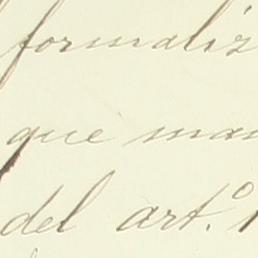 formaliz
que man
del art.º